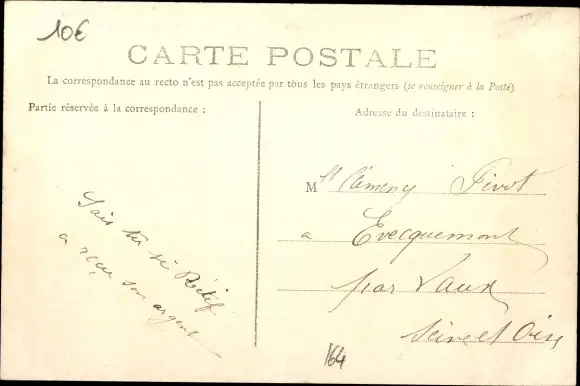 10€
CARTE POSTALE
La correspondance au recto n'est pas acceptée par tous les pays étrangers (se renseigner à la Poste)
Partie réservée à la correspondance :
Adresse du destinataire :
M Pivot
a Evecquemont
par Vaux
Seine et Oise
Sais tu si Rétif
a reçu son argent
164